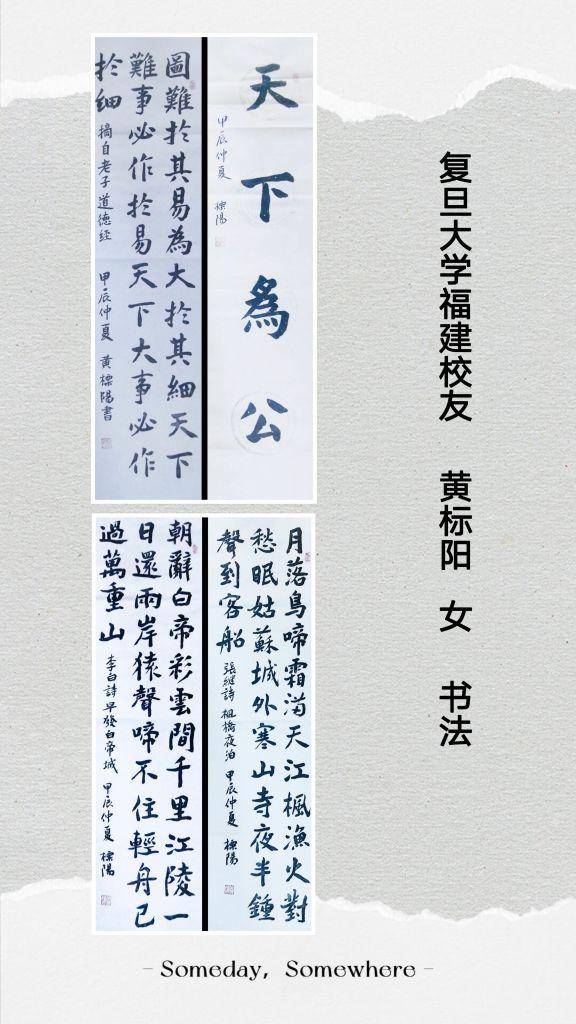 复旦大学福建校友 黄标阳 女 书法
天下為公
甲辰仲夏 標陽
圖難於其易為大於其細天下
難事必作於易天下大事必作
於細 摘自老子道德经 甲辰仲夏 黄標陽書
月落鳥啼霜滿天江楓漁火對
愁眠姑蘇城外寒山寺夜半鍾
聲到客船 張継詩 楓橋夜泊 甲辰仲夏 標陽
朝辭白帝彩雲間千里江陵一
日還兩岸猿聲啼不住輕舟已
過萬重山 李白詩早發白帝城 甲辰仲夏 標陽
- Someday, Somewhere -